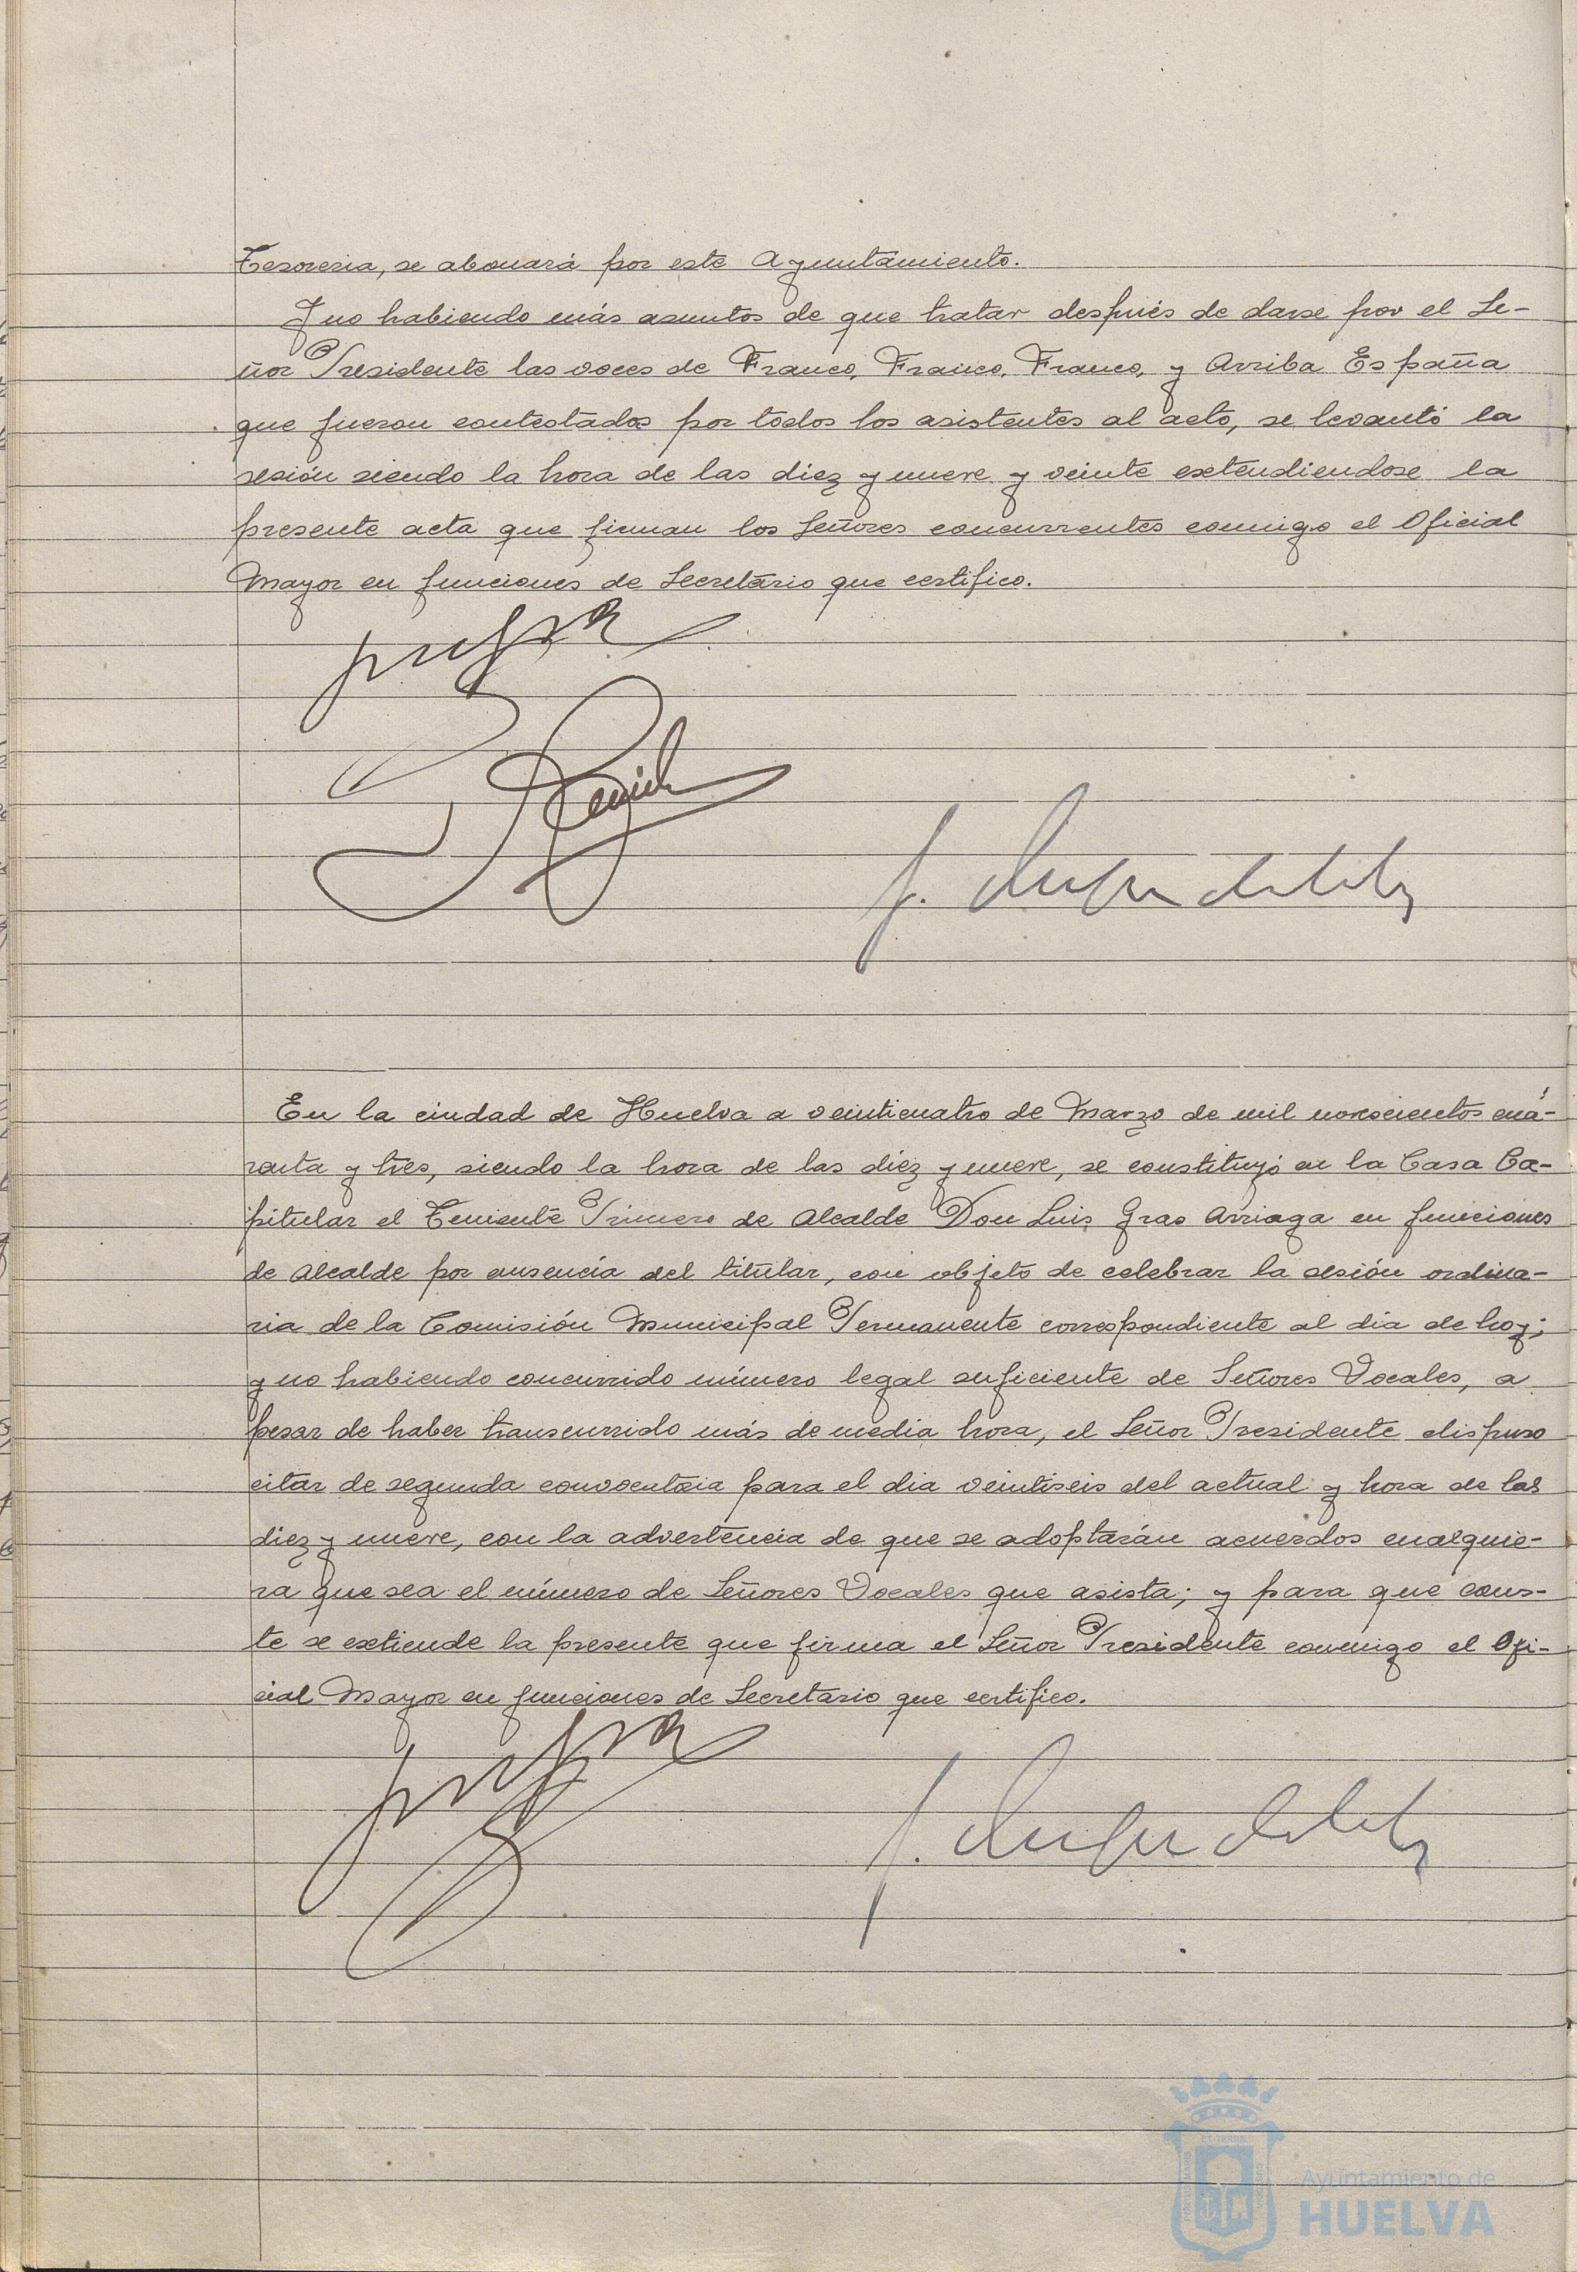 Tesoreria, se abonará por este Ayuntamiento.
Y no habiendo más asuntos de que tratar despúés de darse por el Se-
ñor Presidente las voces de Franco, Franco, Franco, y Arriba España
que fueron contestados por todos los asistentes al acto, se levantó la
sesión siendo la hora de las diez y nueve y veinte extendiendose la
presente acta que firman los Señores concurrentes conmigo el Oficial
Mayor en funciones de Secretario que certifico.
En la ciudad de Huelva a veinticuatro de Marzo de mil novecientos cuá-
renta y tres, siendo la hora de las diez y nueve, se constituyó en la Casa Ca-
pitular el Teniente Primero de Alcalde Don Luis Gras Arriaga en funciones
de Alcalde por ausencia del titular, con objeto de celebrar la sesión ordina-
ria de la Comisión Municipal Permanente correspondiente al día de hoy;
y no habiendo concurrido número legal suficiente de Señores Vocales, a
pesar de haber transcurrido más de media hora, el Señor Presidente dispuso
citar de segunda convocatoria para el dia veintiseis del actual y hora de las
diez y nueve, con la advertencia de que se adoptarán acuerdos cualquie-
ra que sea el número de Señores Vocales que asista; y para que cons-
te se extiende la presente que firma el Señor Presidente conmigo el Ofi-
cial Mayor en funciones de Secretario que certifico.
Ayuntamiento de
HUELVA